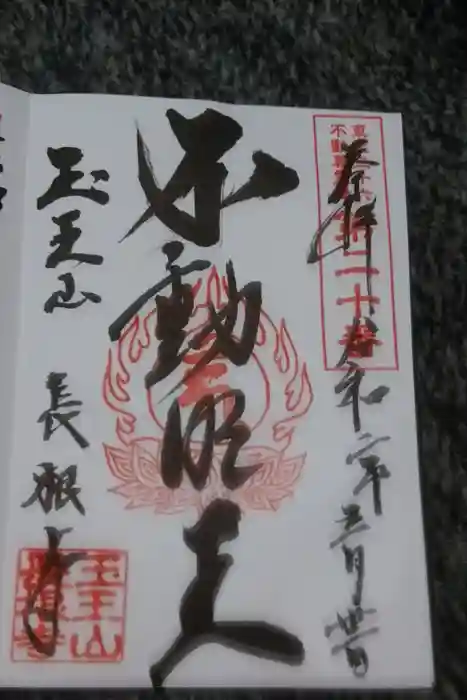 奉拝
令和二年三月廿二日
不動明王
玉王山
長根寺
二十番
玉王山
長根寺